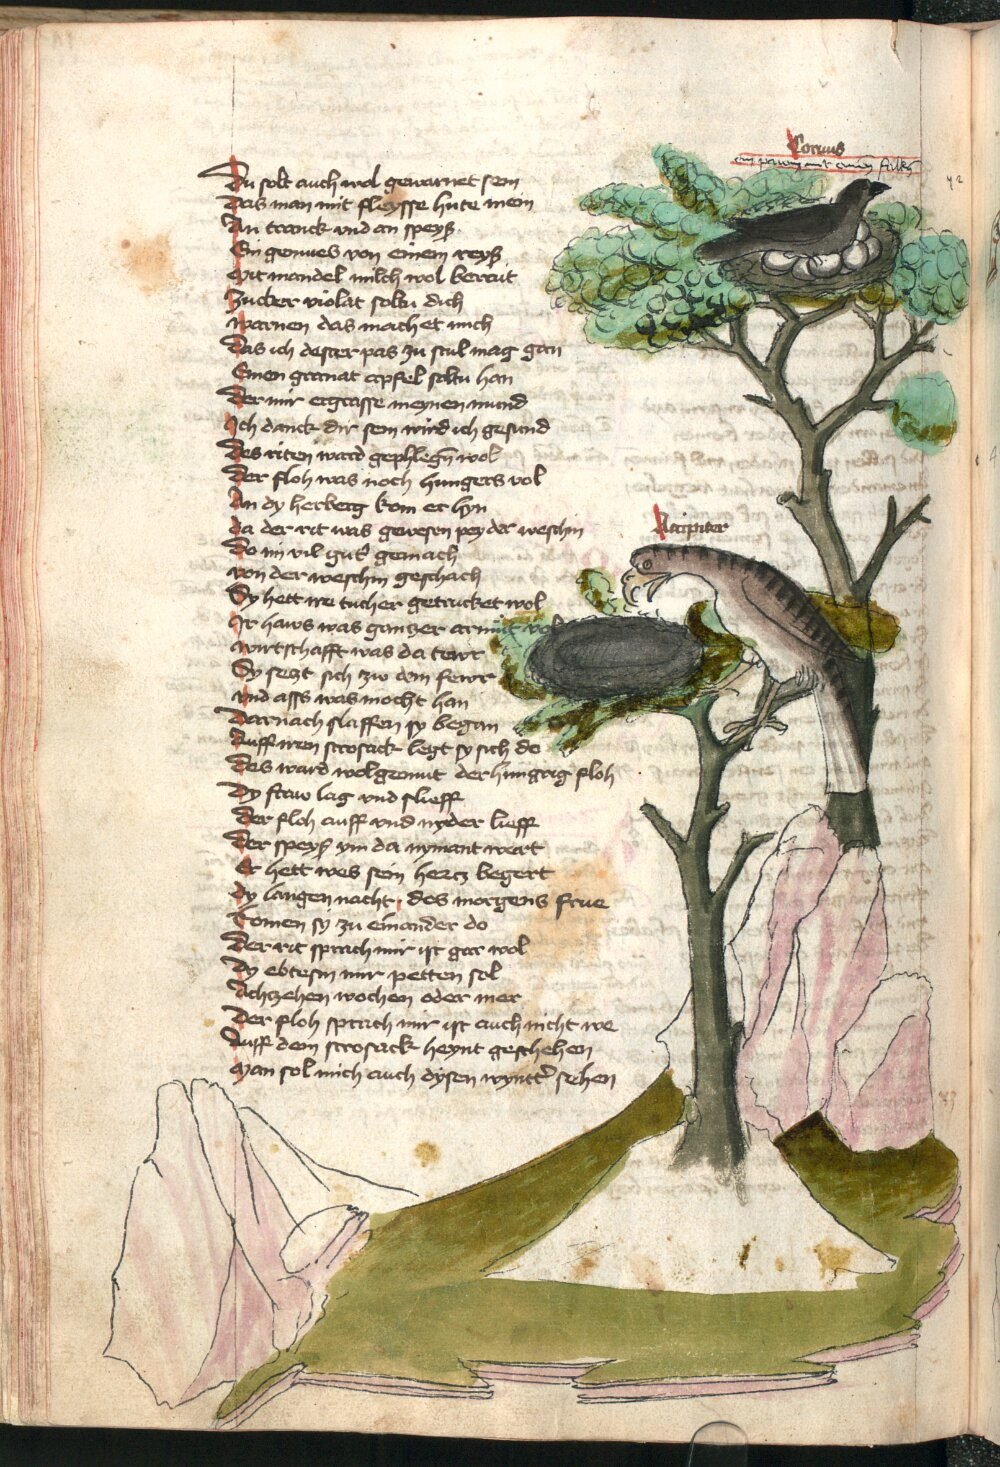 Corvus
Du solt auch wol gewarnet sein
Das man mit fleysse hute mein
An tranck vnd an speyß
Ein gemues von einem reyß
Mit mandel milch wol berait
Zucker violat soltu dich
warnen das machet mich
Das ich dester pas zu stul mag gan
Einen granat apfel soltu han
Der mir ergrasse meynen mund
Ich danck dir sein wird ich gesund
Des riten ward gephlegn wol
Der floh was noch hungers vol
An dy herberg kom er hyn
da der rit was gewesen pey der weschin
Do im vil gut gemach
von der weschin geschach
Sy hett ire tucher getrucket wol
Ir haws was ganzer armut vol
wirtschafft was da tewr
Sy setzt sich zw dem fewr
vnd asss was mocht han
Darnach slaffen sy began
Auff iren strosack legt sy sich do
Des ward wolgemut der hungrig floh
Dy fraw lag vnd slieff
der floh auff vnd nyder lieff
der speyß ym da nymant wert
Er hett wes sein hercz begert
dy langen nacht, des morgens frue
Komen sy zu einander do
Der rit sprach mir ist gar wol
dy ebtesin mir petten sol
Achzehen wochen oder mer
Der floh sprach mir ist auch nicht we
Auff dem strosack heynt geschehen
Man sol mich auch dysen wyntter sehen
Accipiter
42